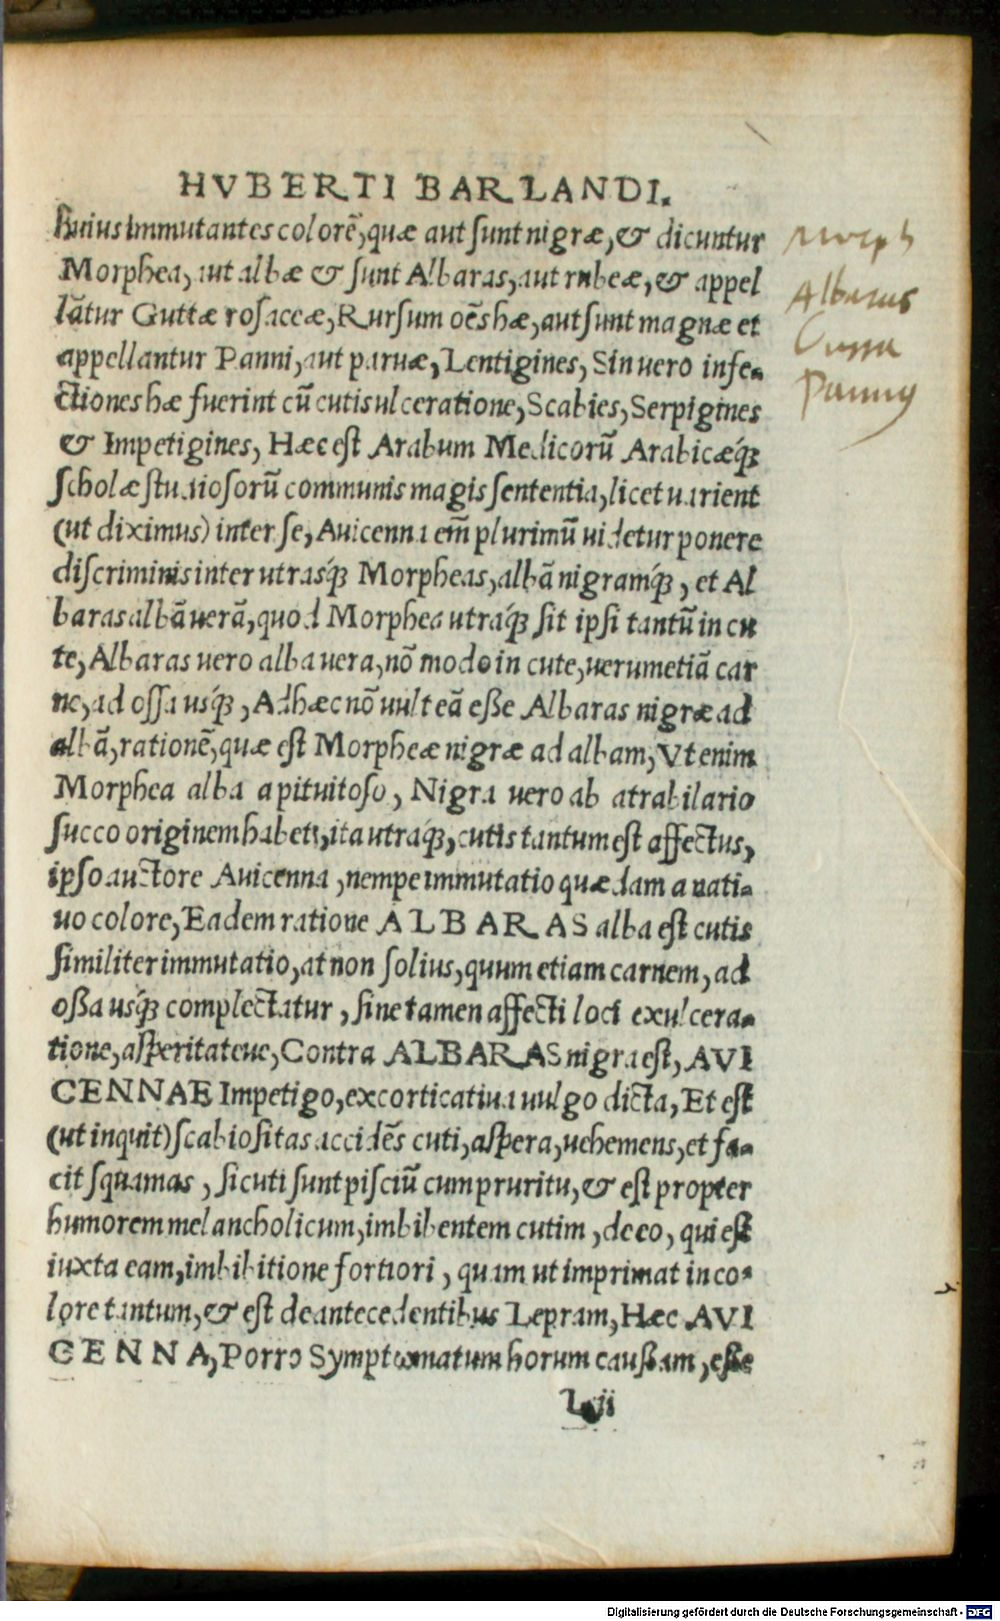 HVBERTI BARLANDI.
huius immutantes colorē, quæ aut sunt nigræ, & dicuntur
Morphea, aut albæ & sunt Albaras, aut rubeæ, & appel
lātur Guttæ rosaceæ, Rursum oēs hæ, aut sunt magnæ et
appellantur Panni, aut paruæ, Lentigines, Sin uero infe-
ctiones hæ fuerint cū cutis ulceratione, Scabies, Serpigines
& Impetigines, Hæc est Arabum Medicorū Arabicæq́;
scholæ studiosorū communis magis sententia, licet uarient
(ut diximus) inter se, Auicenna em̄ plurimū uidetur ponere
discriminis inter utrasq́; Morpheas, albā nigramq́;, et Al
baras albā uerā, quod Morphea utraq́; sit ipsi tantū in cu
te, Albaras uero alba uera, nō modo in cute, uerumetiā car
ne, ad ossa usq́;, Adhæc nō uult eā eße Albaras nigræ ad
albā, rationē, quæ est Morpheæ nigræ ad albam, Vt enim
Morphea alba a pituitoso, Nigra uero ab atrabilario
succo originem habet, ita utraq́;, cutis tantum est affectus,
ipso auctore Auicenna, nempe immutatio quædam a nati-
uo colore, Eadem ratione ALBARAS alba est cutis
similiter immutatio, at non solius, quum etiam carnem, ad
oßa usq́; complectatur, sine tamen affecti loci exulcera-
tione, asperitateue, Contra ALBARAS nigra est, AVI
CENNAE Impetigo, excorticatiua uulgo dicta, Et est
(ut inquit) scabiositas accidēs cuti, aspera, uehemens, et fa-
cit squamas, sicuti sunt pisciū cum pruritu, & est propter
humorem melancholicum, imbibentem cutim, de eo, qui est
iuxta eam, imbibitione fortiori, quam ut imprimat in co-
lore tantum, & est de antecedentibus Lepram, Hæc AVI
CENNA, Porro Symptωmatum horum causam, eße
L ii
morph
Albaras
Gutta
Pannus
Digitalisierung gefördert durch die Deutsche Forschungsgemeinschaft - DFG